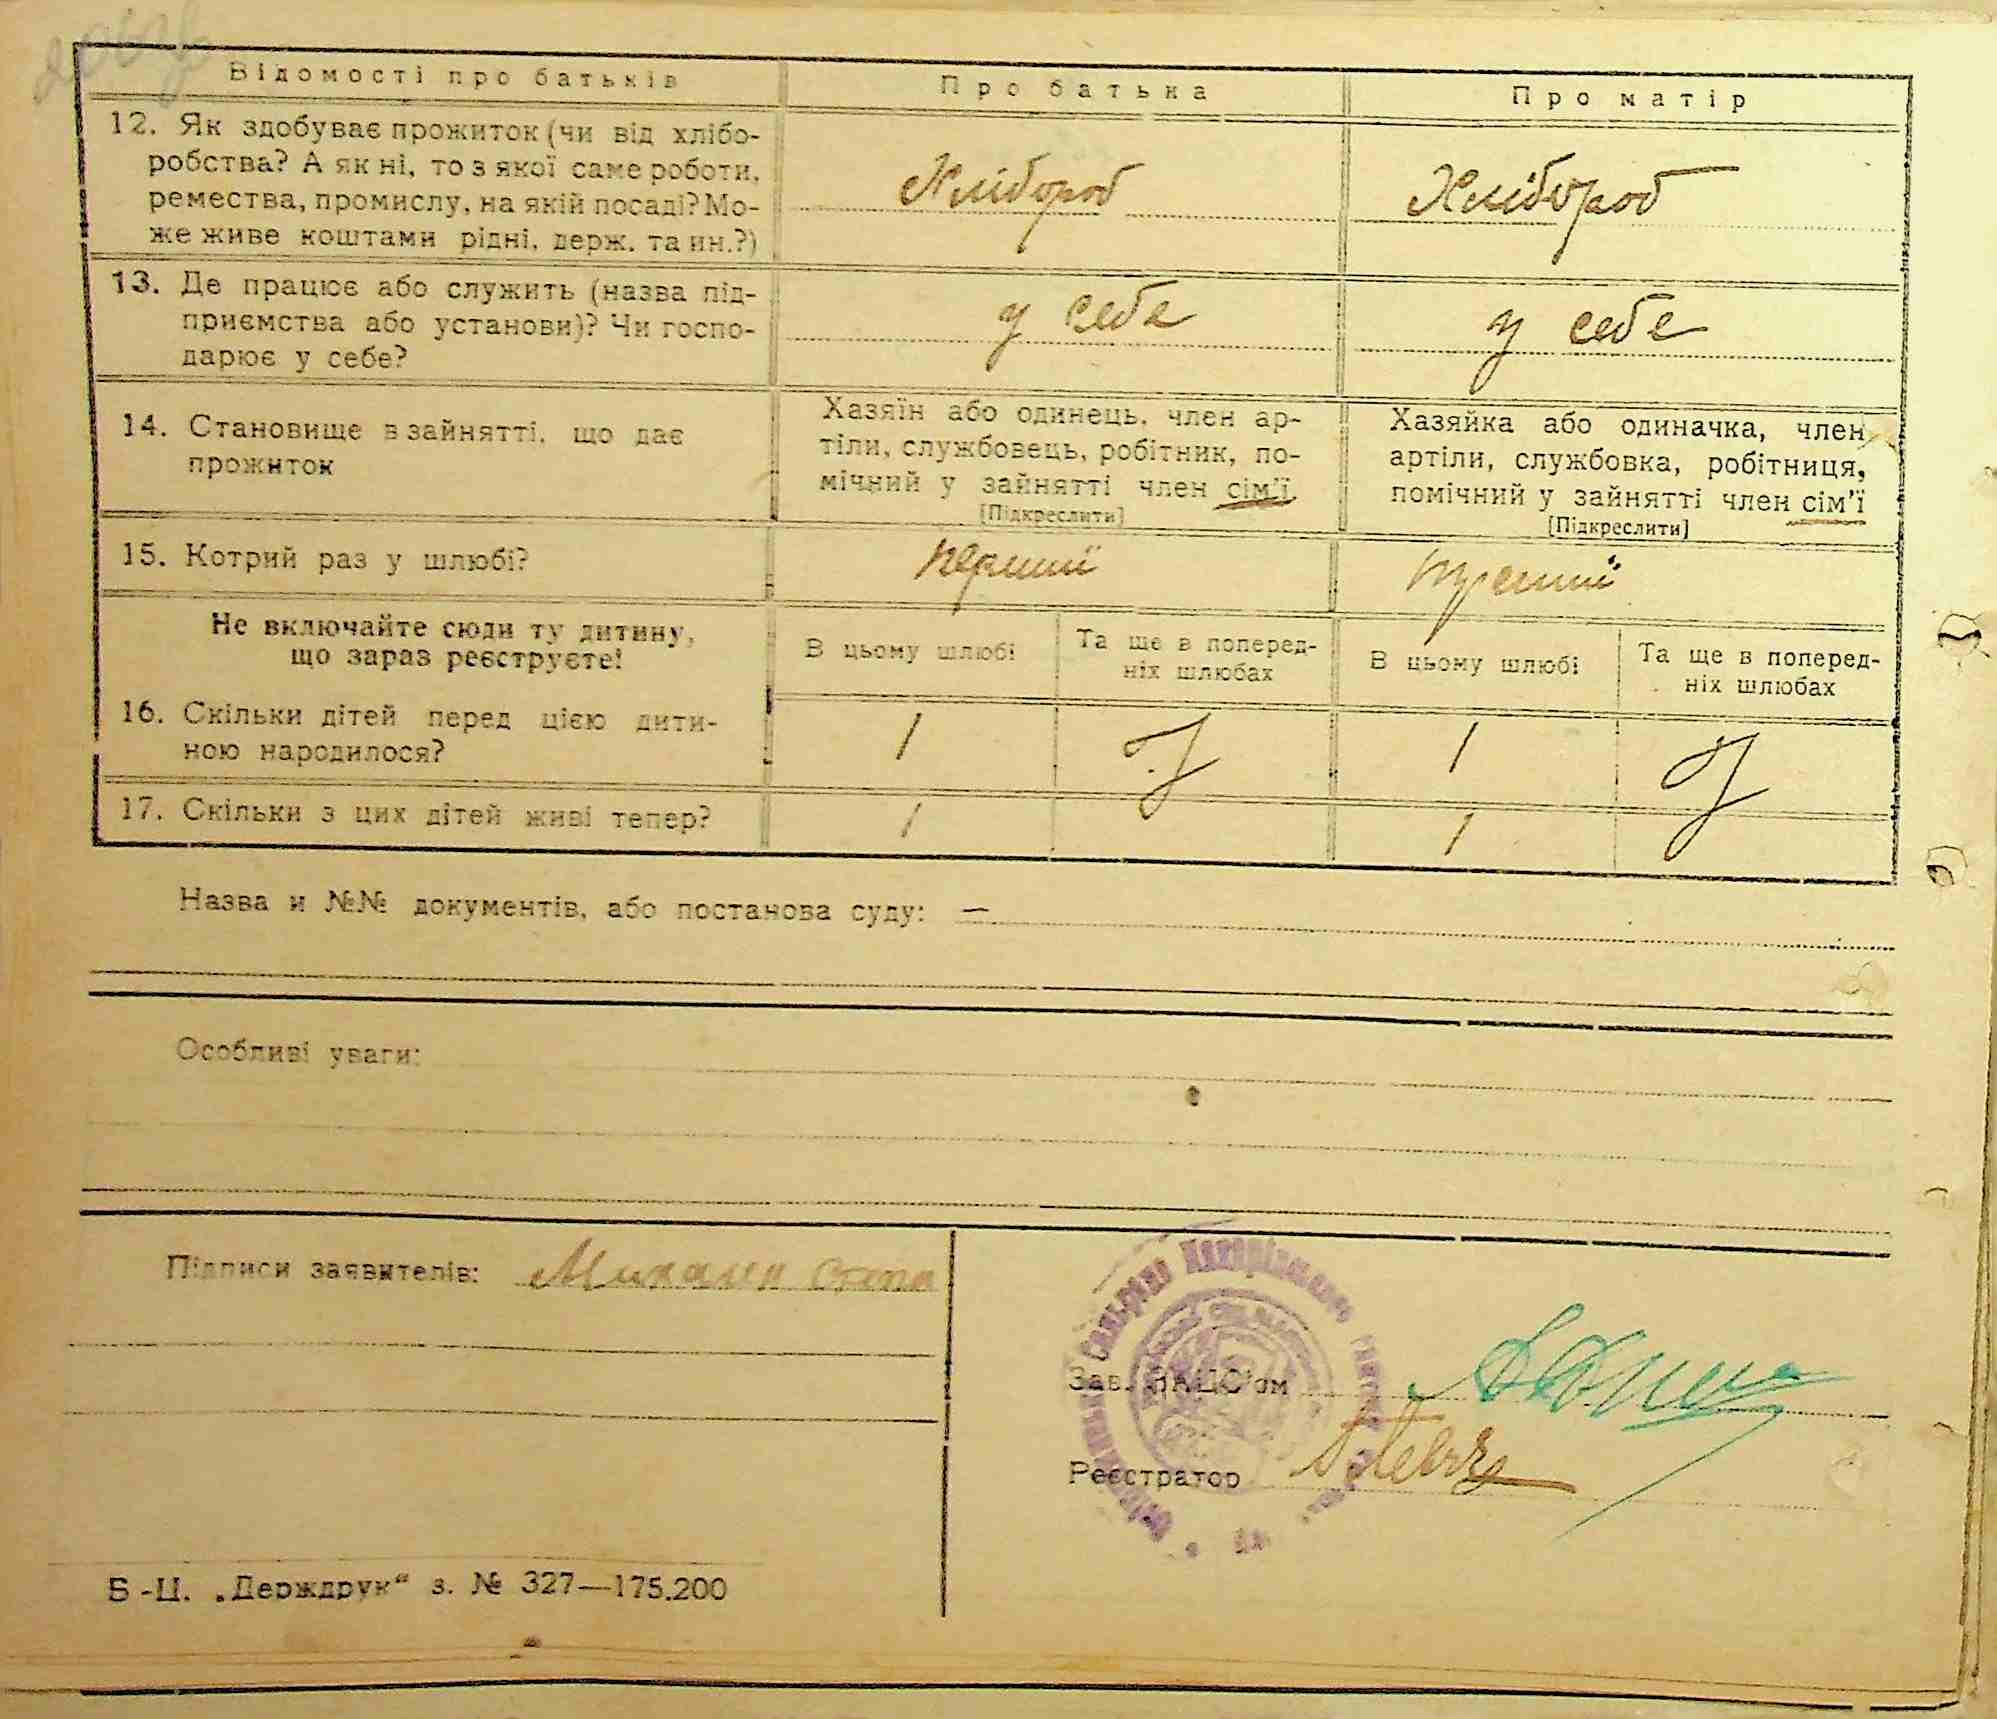 Відомості про батьків
Про батька
Про матір
12. Як здобуває прожиток (чи від хлібо-
робства? А як ні, то з якої саме роботи,
ремества, промислу, на якій посаді? Мо-
же живе коштами рідні, держ. та ин.?)
Хлібороб
Хлібороб
13. Де працює або служить (назва під-
приємства або установи)? Чи госпо-
дарює у себе?
у себе
у себе
14. Становище в зайнятті, що дає
прожиток
Хазяїн або одинець, член ар-
тіли, службовець, робітник, по-
мічний у зайнятті член сім'ї
[Підкреслити]
Хазяйка або одиначка, член
артіли, службовка, робітниця,
помічний у зайнятті член сім'ї
[Підкреслити]
15. Котрий раз у шлюбі?
перший
Не включайте сюди ту дитину,
що зараз реєструєте!
В цьому шлюбі
Та ще в поперед-
ніх шлюбах
В цьому шлюбі
Та ще в поперед-
ніх шлюбах
16. Скільки дітей перед цією дити-
ною народилося?
1
1
17. Скільки з цих дітей живі тепер?
1
1
Назва и №№ документів, або постанова суду: —
Особливі уваги:
Підписи заявителів:
Зав. ЗАЦС'ом
Реєстратор
Б-Ц. „Держдрук“ з. № 327—175.200